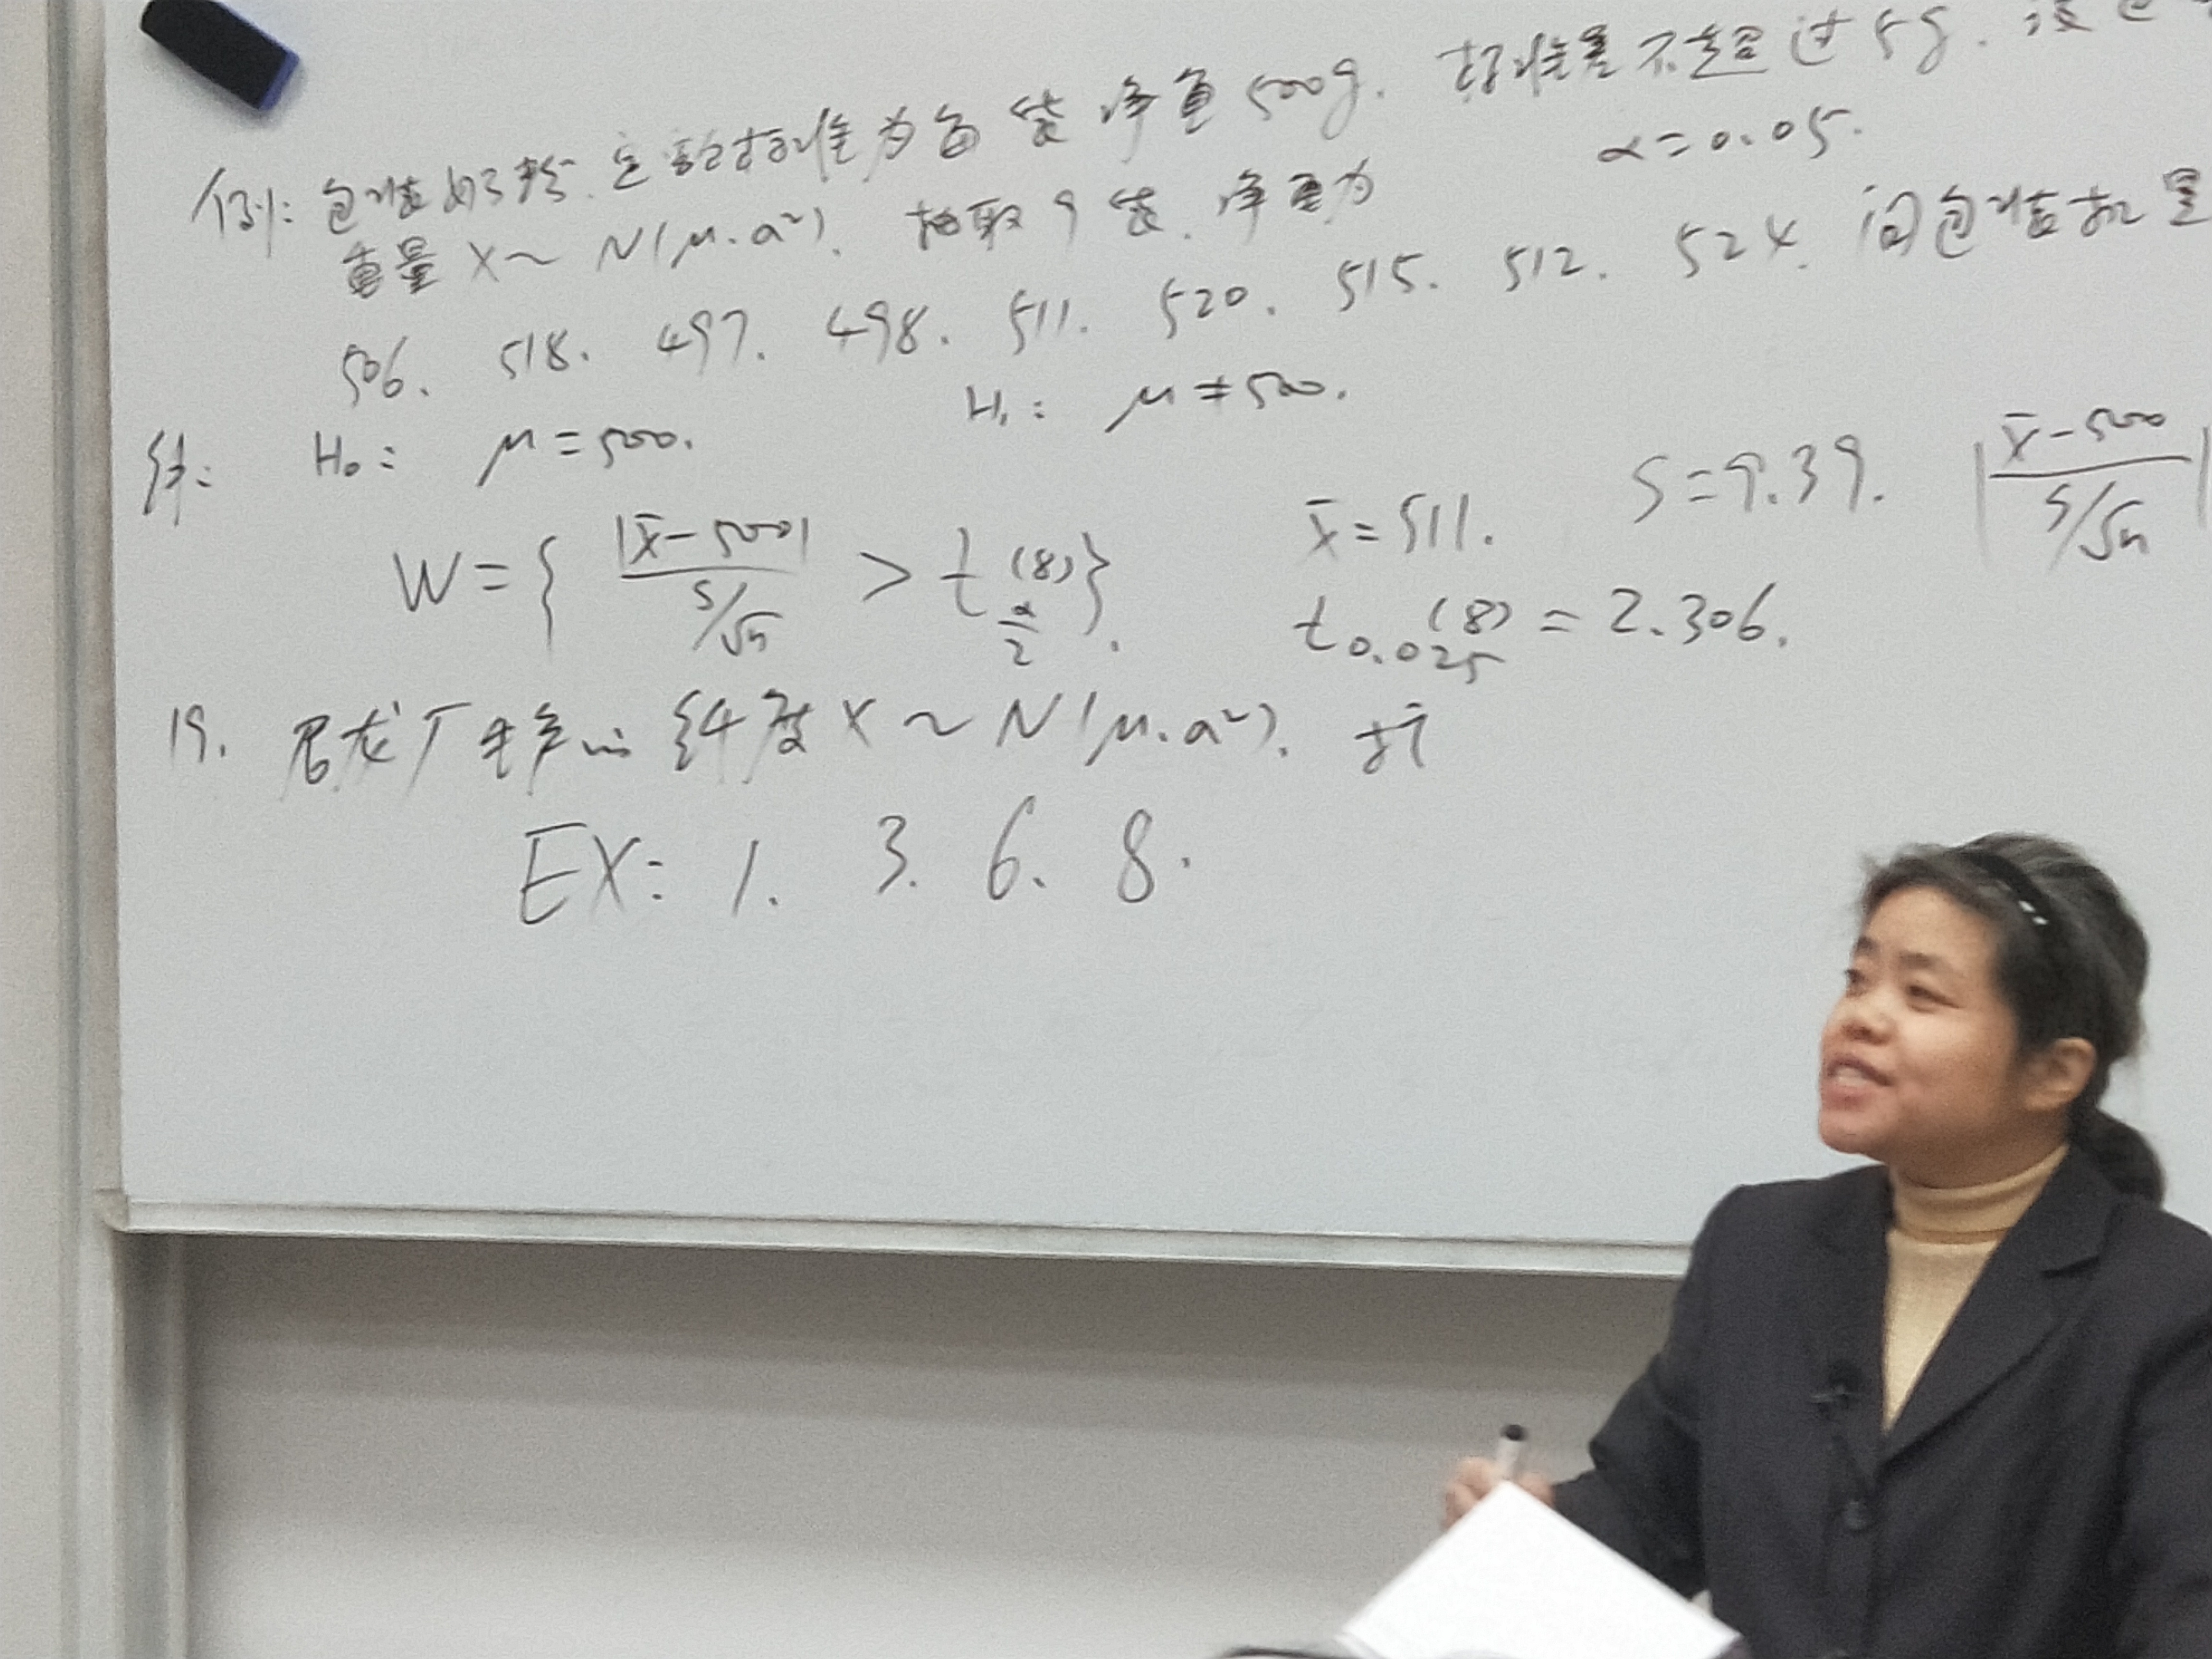 例: 包装奶粉. 定额标准为每袋净重500g. 标准差不超过5g. 该包
重量 X~N(μ.σ²). 抽取9袋. 净重为 α=0.05.
506. 518. 497. 498. 511. 520. 515. 512. 524. 问包装机是
解: H₀: μ=500. H₁: μ≠500.
W={ |x̄-500| / S/√n > t_{α/2}(8) }. x̄=511. S=9.39. | x̄-500 / S/√n |
t_{0.025}(8)=2.306.
19. 尼龙厂生产的纤度 X~N(μ.σ²). 抗
EX: 1. 3. 6. 8.